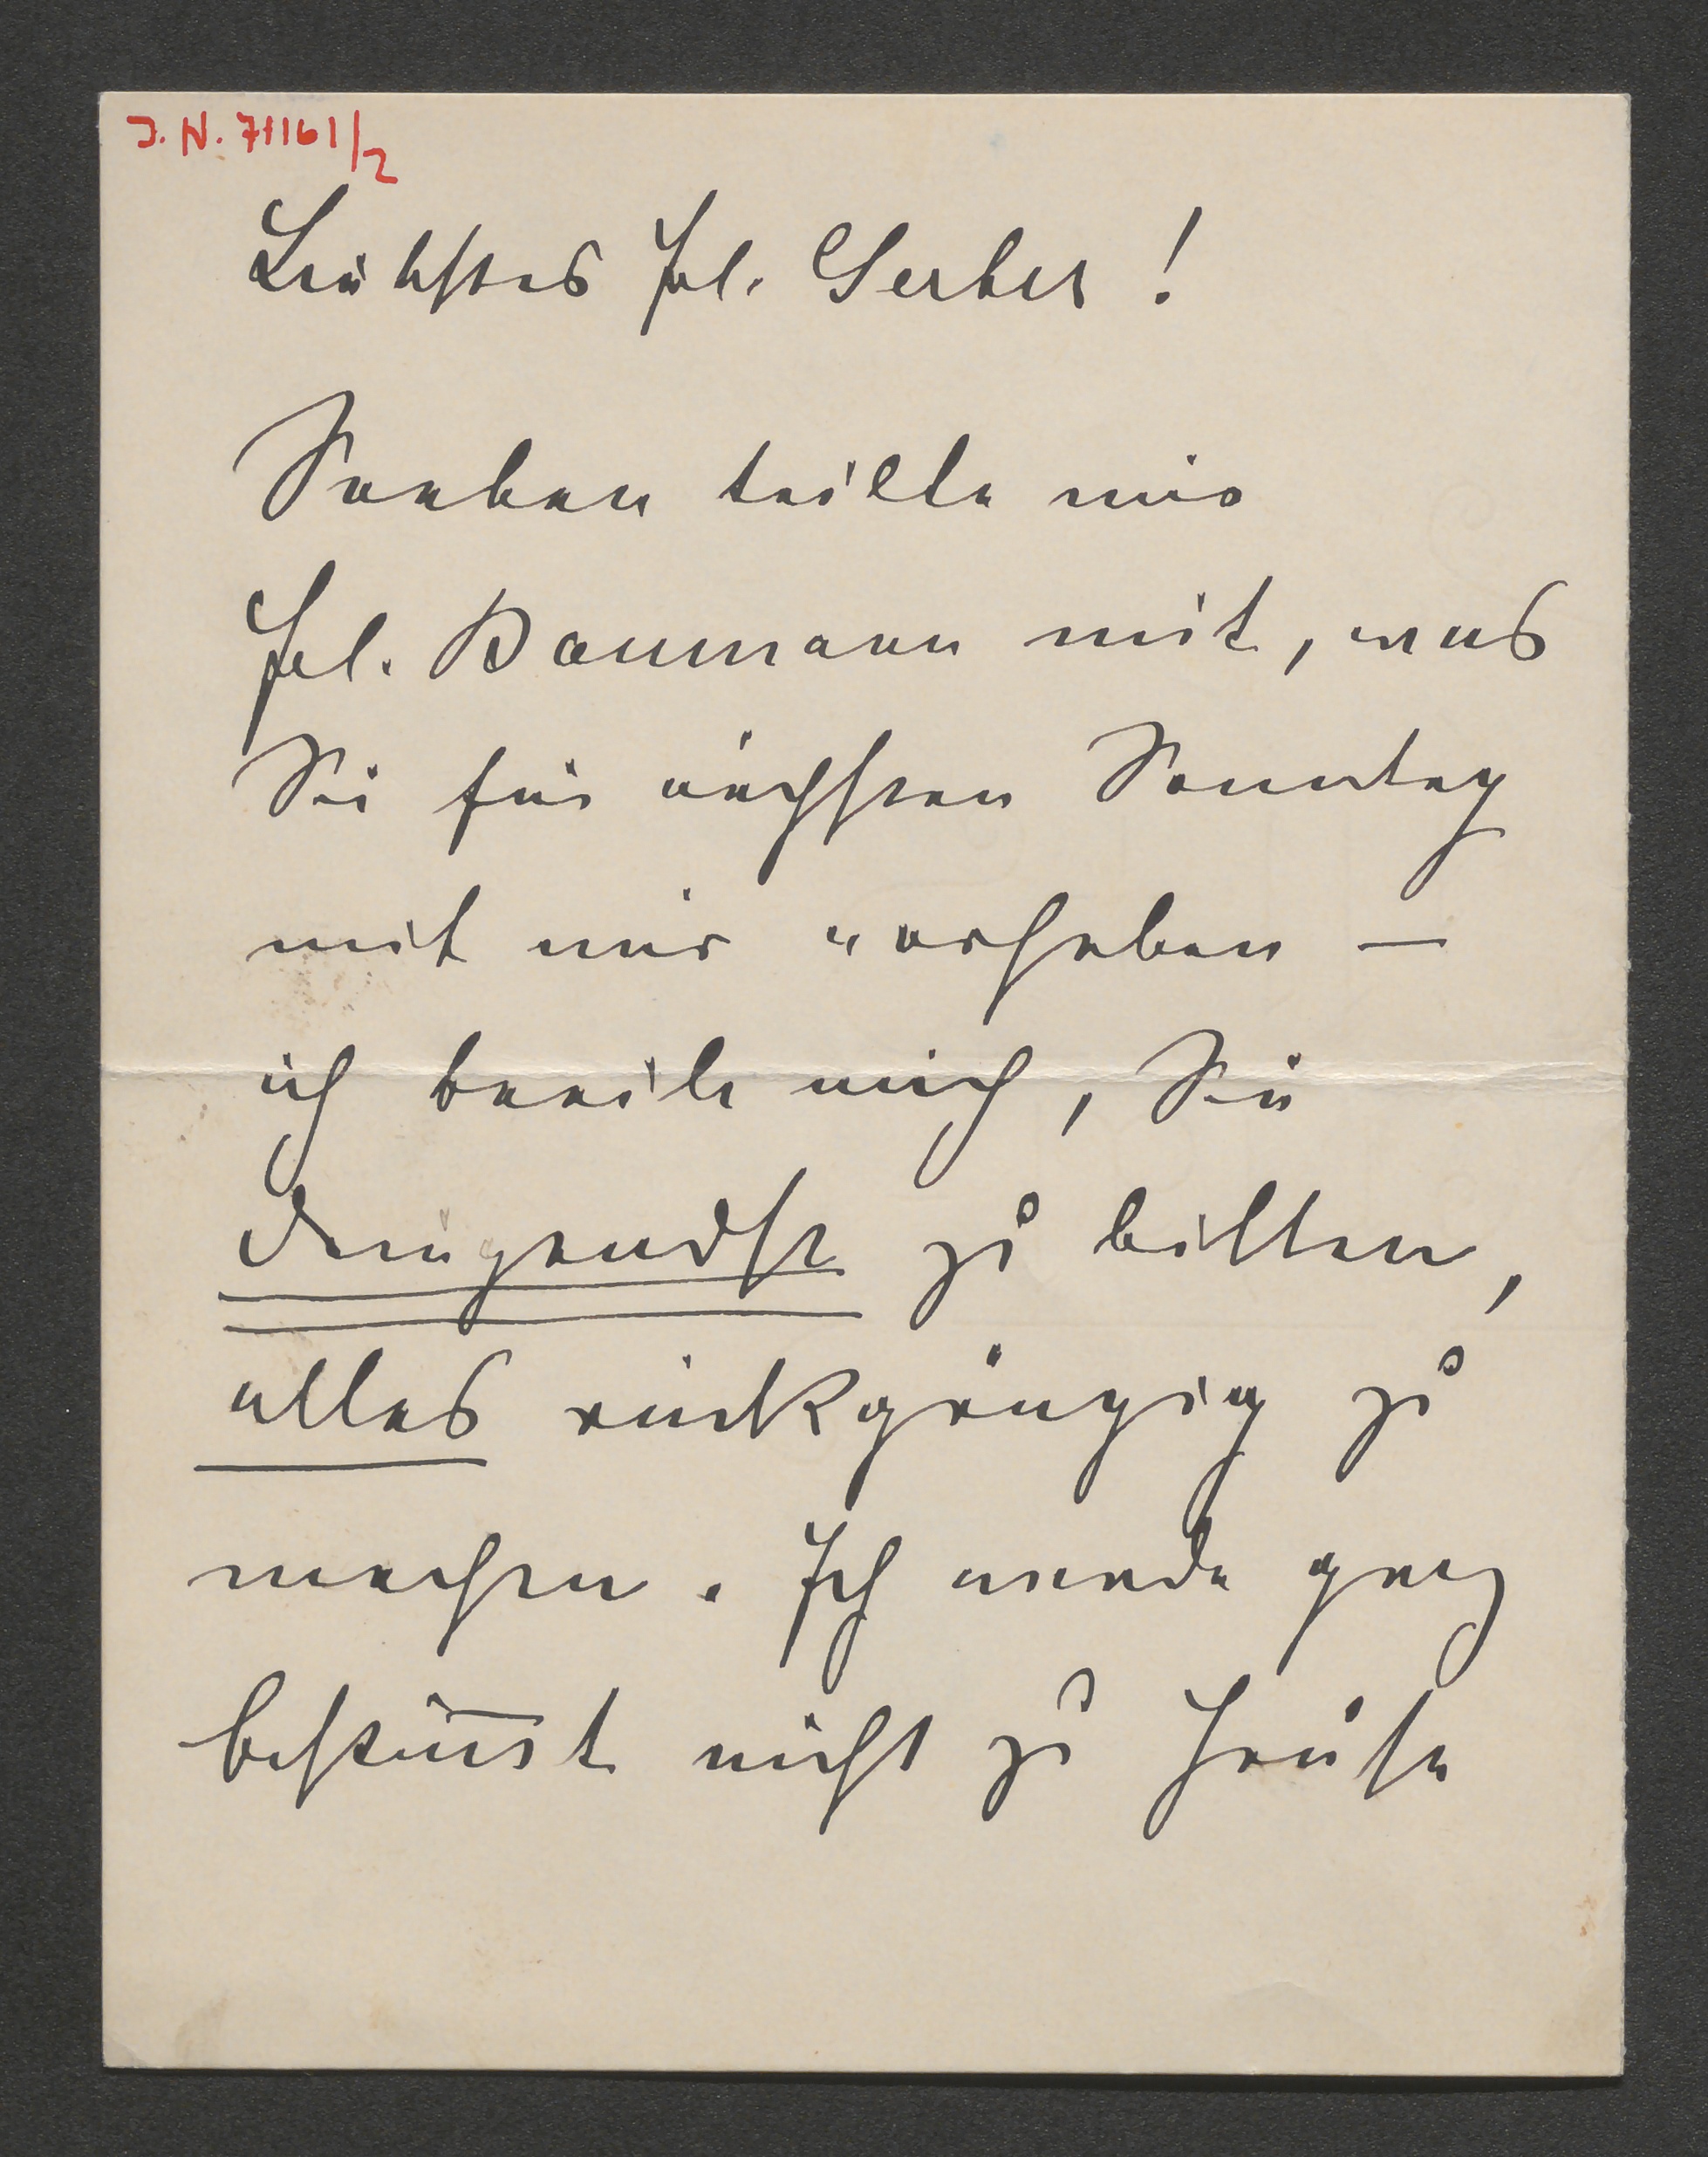 J. N. 71161/2
Liebstes Frl. Gerber!
Soeben teilte mir
Frl. Baumann mit, was
Sie für nächsten Sonntag
mit mir vorhaben —
ich beeile mich, Sie
dringendst zu bitten,
alles rückgängig zu
machen. Ich werde ganz
bestim̅t nicht zu Hause